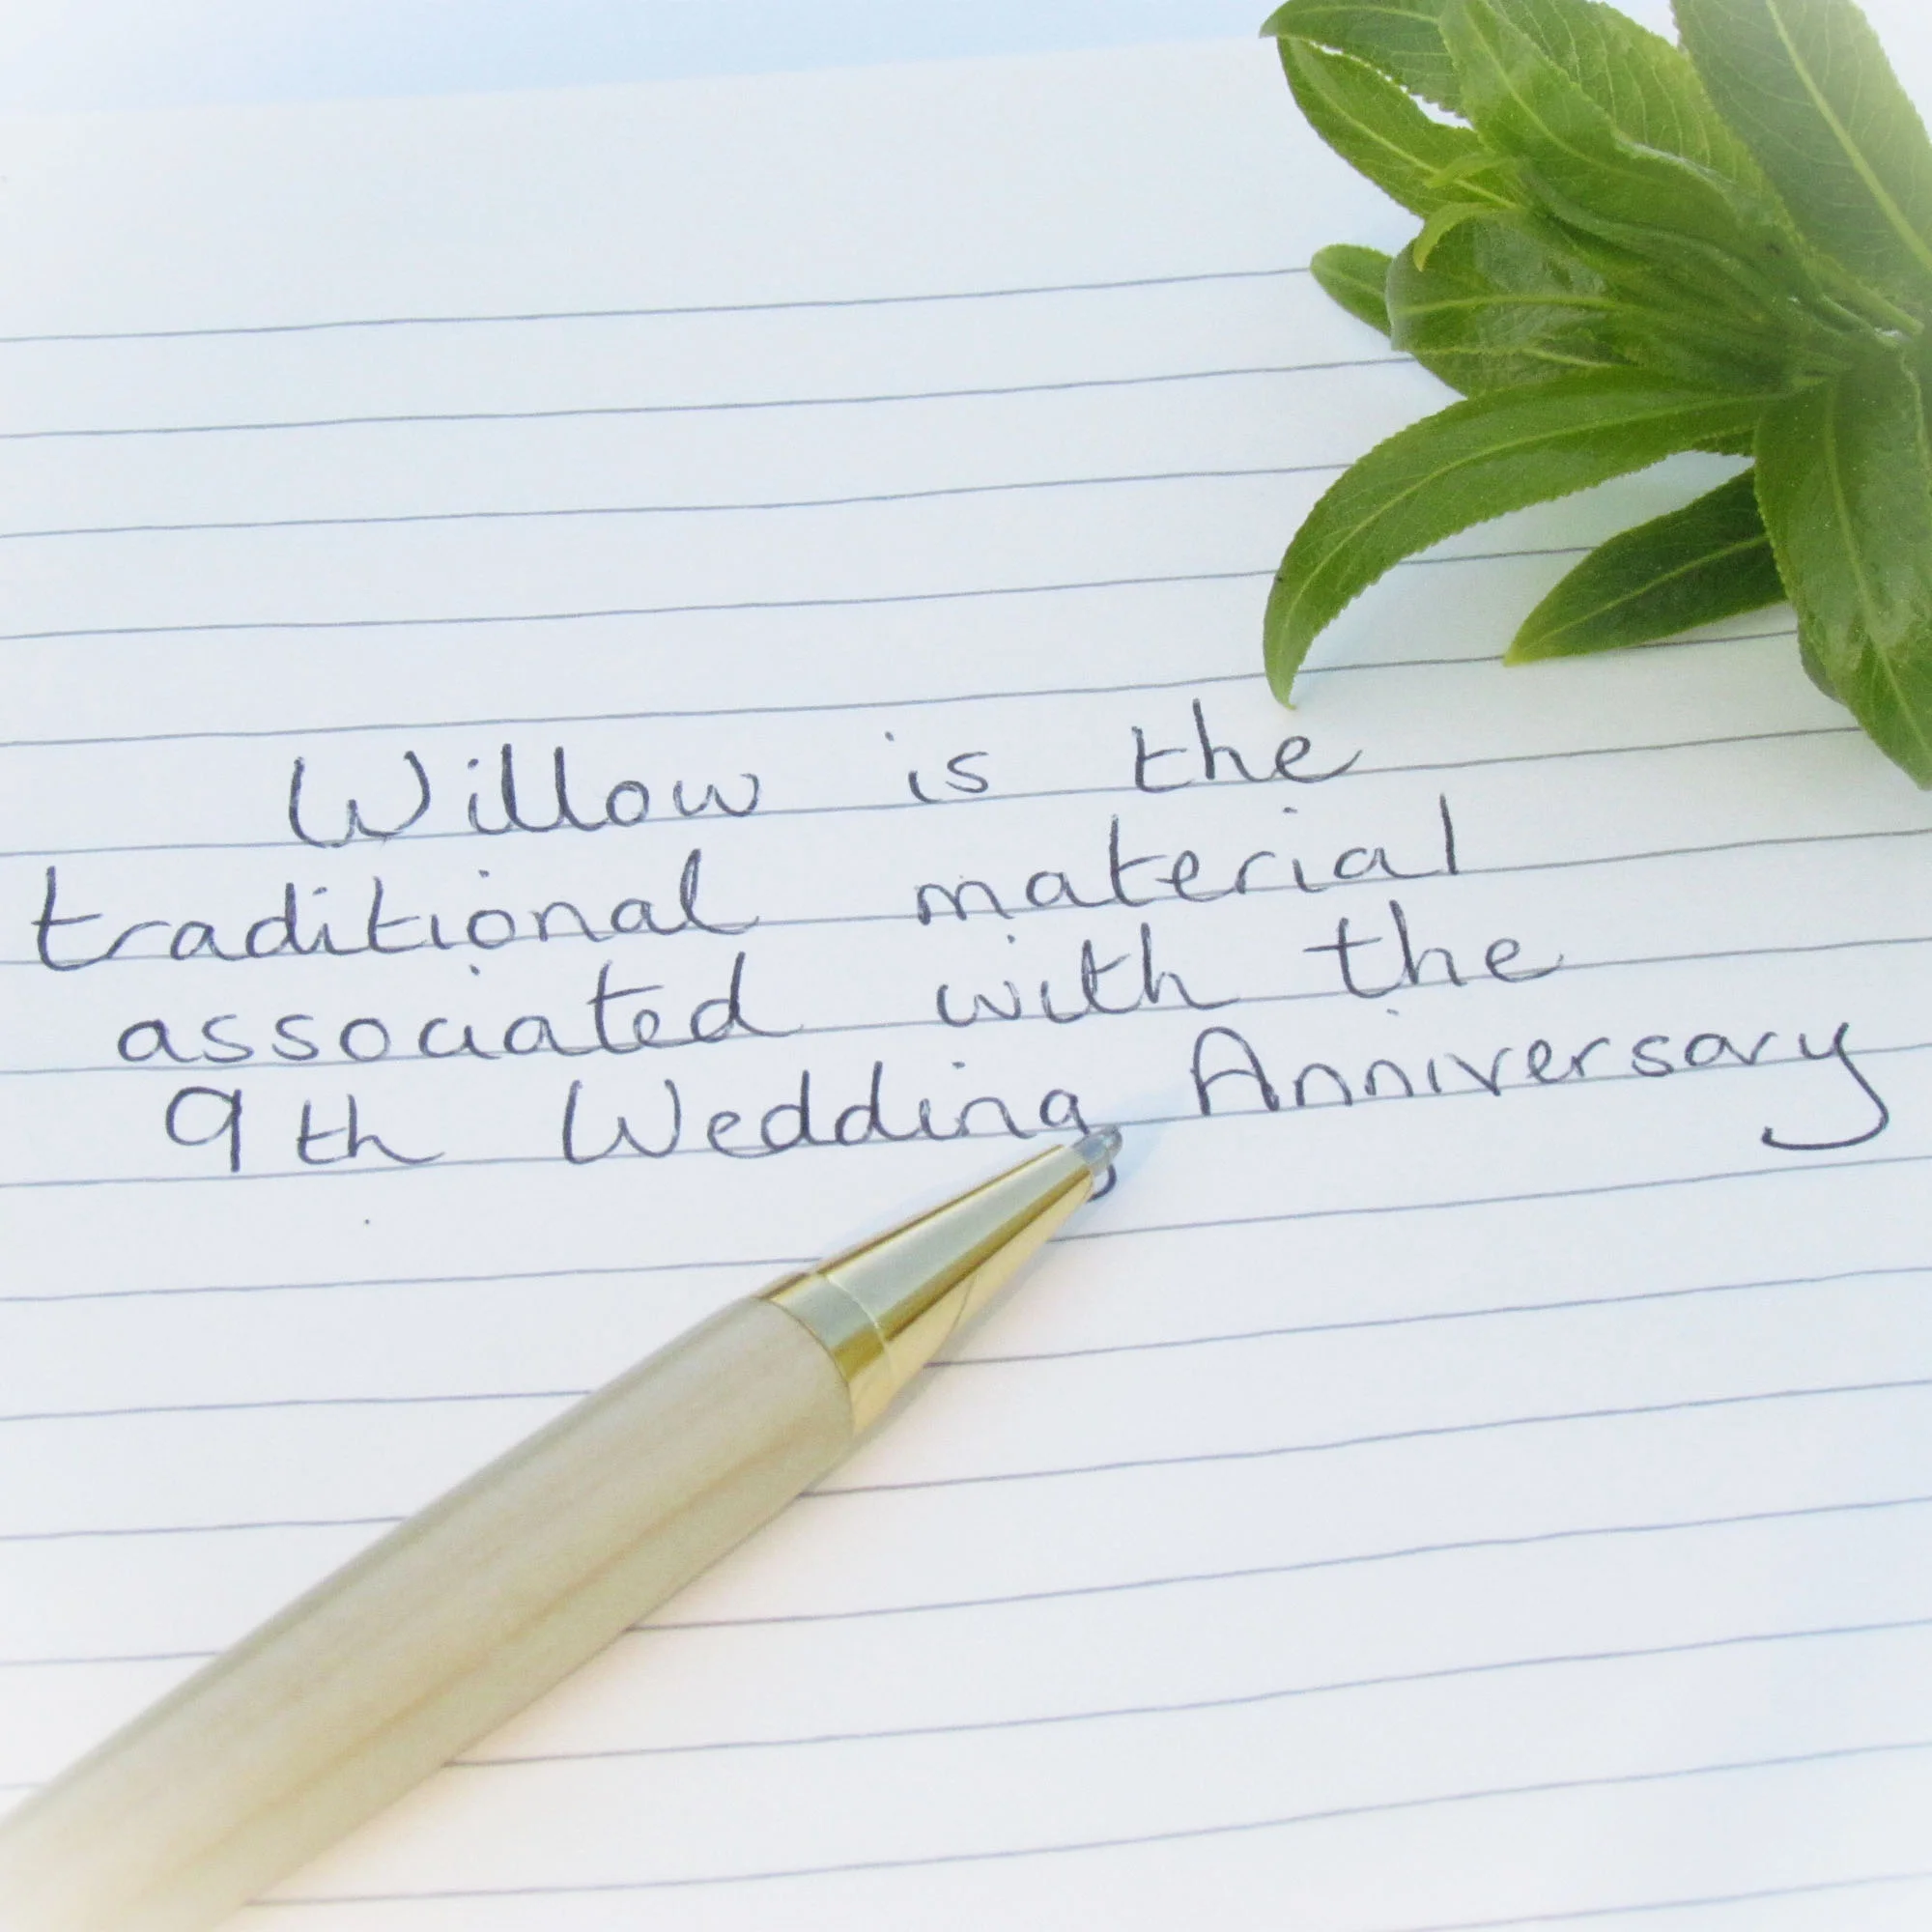 Willow is the
traditional material
associated with the
9th Wedding Anniversary